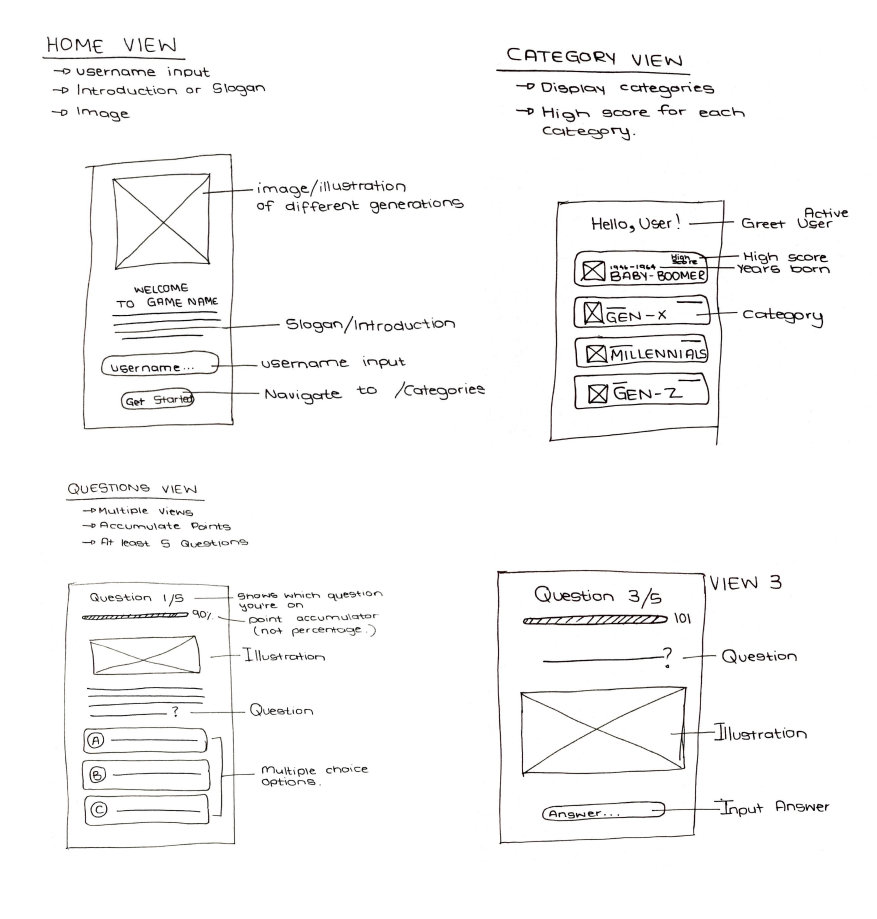 HOME VIEW
→ username input
→ Introduction or Slogan
→ Image
image/illustration
of different generations
WELCOME
TO GAME NAME
Slogan/Introduction
username...
username input
Get Started
Navigate to /Categories
CATEGORY VIEW
→ Display categories
→ High score for each
category.
Hello, User!
Greet Active User
High score
1946-1964
BABY-BOOMER
High score
Years born
GEN-X
Category
MILLENNIALS
GEN-Z
QUESTIONS VIEW
→ Multiple views
→ Accumulate Points
→ At least 5 Questions
Question 1/5
shows which question
you're on
90%
point accumulator
(not percentage.)
Illustration
?
Question
A
B
C
Multiple choice
options.
VIEW 3
Question 3/5
101
?
Question
Illustration
Answer...
Input Answer